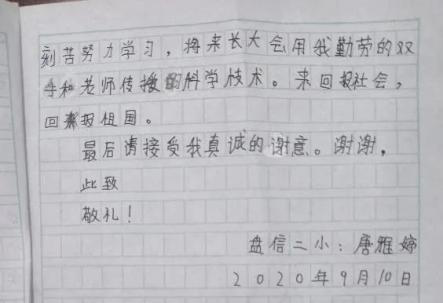 刻苦努力学习，将来长大会用我勤劳的双
手和老师传授的科学技术。来回报社会，
回报祖国。
最后请接受我真诚的谢意。谢谢，
此致
敬礼！
盘信二小：唐雅婷
2020年9月10日